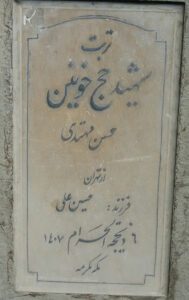 تربت
شهید حج خونین
حسن مهتدی
از تهران
فرزند: حسین علی
٦ ذیحجة الحرام ١٤٠٧
مکه مکرمه